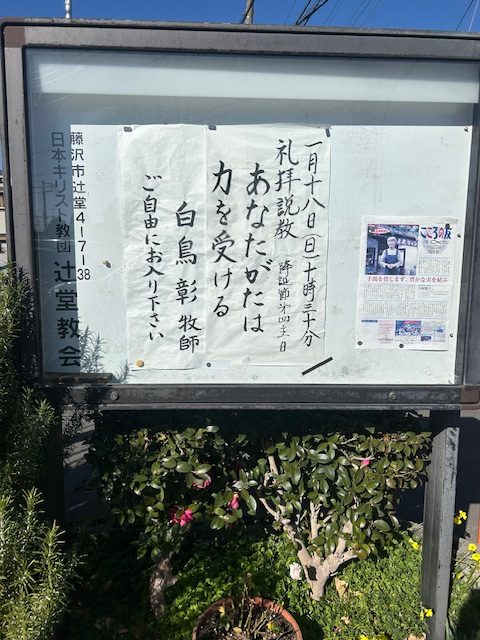 一月十八日(日)十時三十分
礼拝説教 降誕節第四主日
あなたがたは
力を受ける
白鳥 彰 牧師
ご自由にお入り下さい
藤沢市辻堂4-7-38
日本キリスト教団 辻堂教会
こころの友
手間を惜しまず、豊かな実を結ぶ